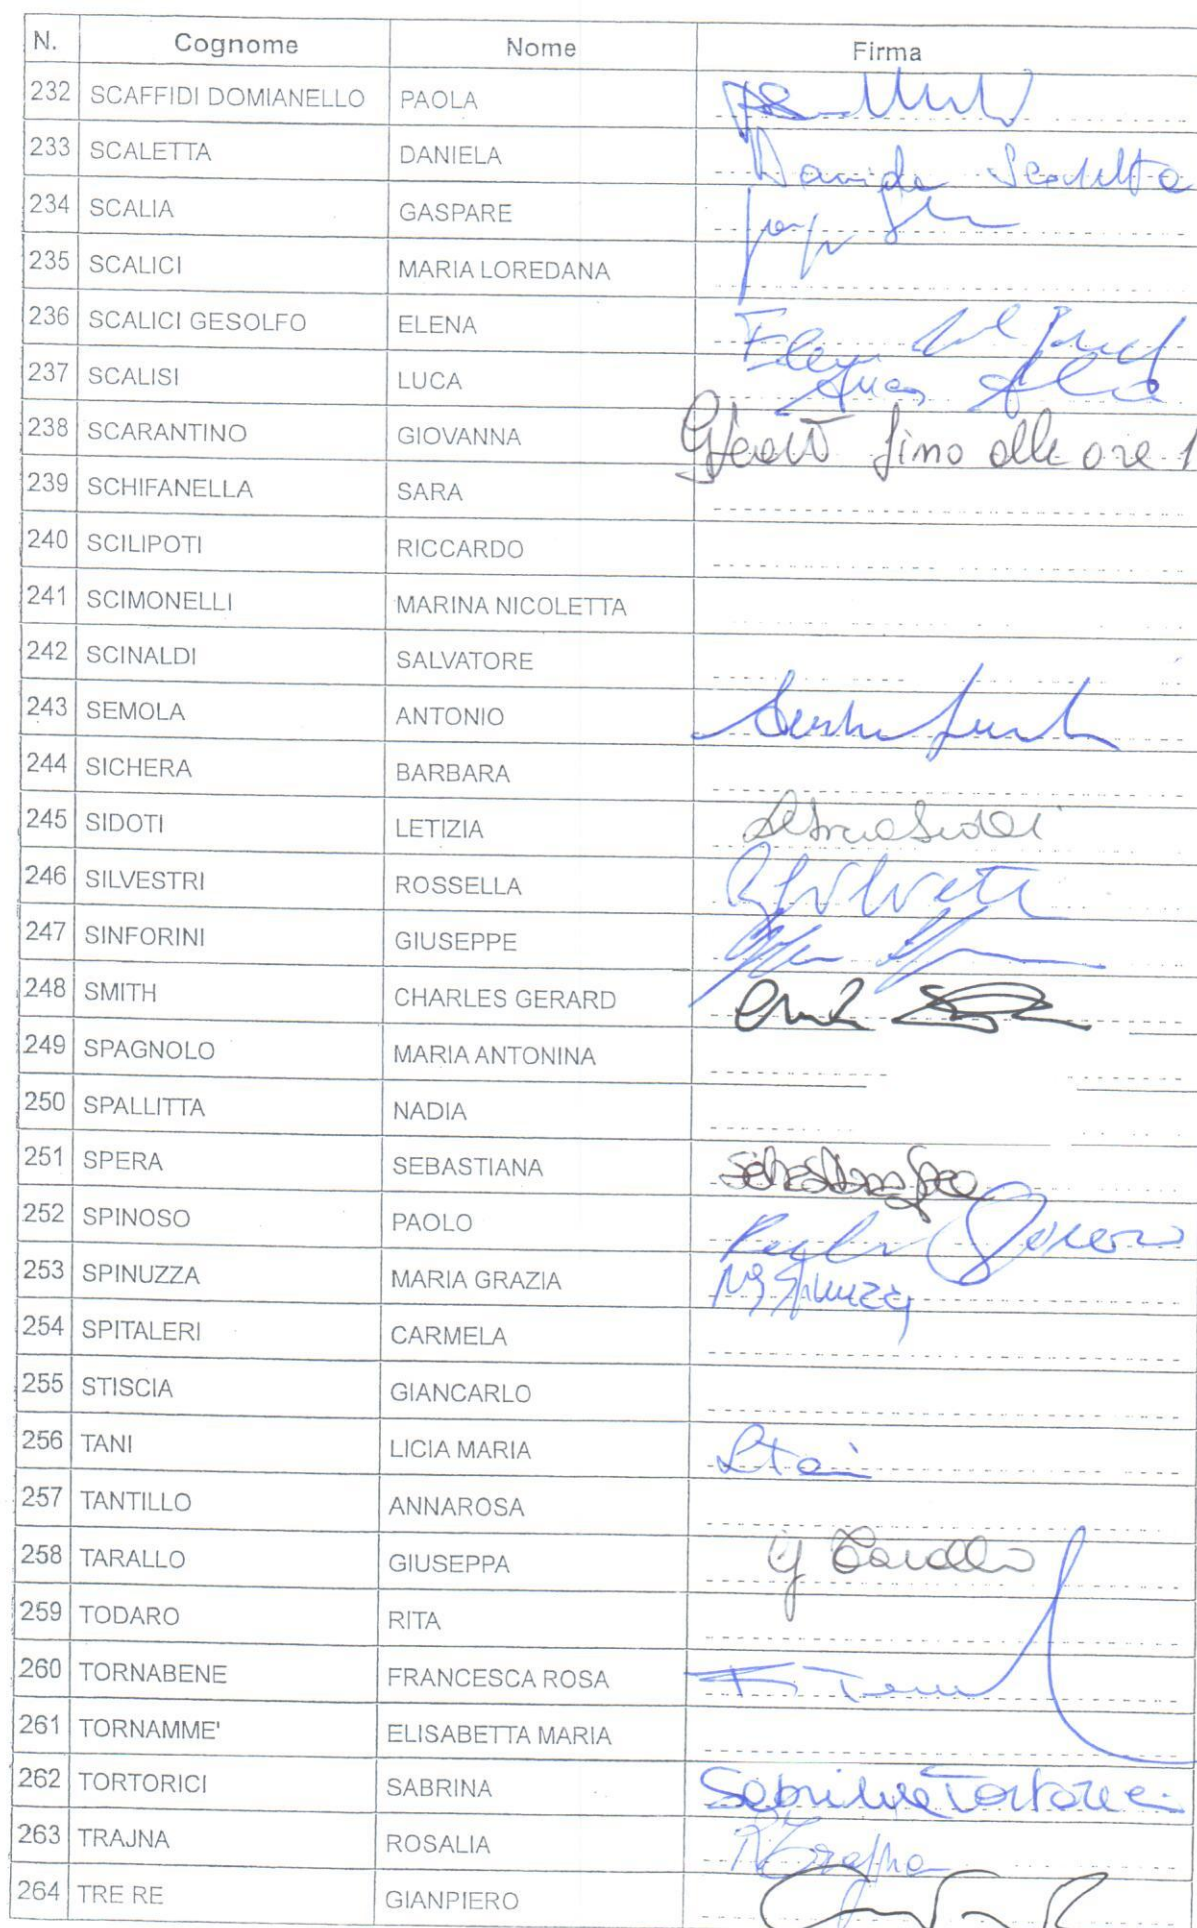 N. Cognome Nome Firma
232 SCAFFIDI DOMIANELLO PAOLA
233 SCALETTA DANIELA Daniela Scaletta
234 SCALIA GASPARE
235 SCALICI MARIA LOREDANA
236 SCALICI GESOLFO ELENA Elena
237 SCALISI LUCA Luca
238 SCARANTINO GIOVANNA fino alle ore 1
239 SCHIFANELLA SARA
240 SCILIPOTI RICCARDO
241 SCIMONELLI MARINA NICOLETTA
242 SCINALDI SALVATORE
243 SEMOLA ANTONIO
244 SICHERA BARBARA
245 SIDOTI LETIZIA Letizia Sidoti
246 SILVESTRI ROSSELLA
247 SINFORINI GIUSEPPE
248 SMITH CHARLES GERARD
249 SPAGNOLO MARIA ANTONINA
250 SPALLITTA NADIA
251 SPERA SEBASTIANA Sebastiana Spera
252 SPINOSO PAOLO Paolo Spinoso
253 SPINUZZA MARIA GRAZIA MG Spinuzza
254 SPITALERI CARMELA
255 STISCIA GIANCARLO
256 TANI LICIA MARIA
257 TANTILLO ANNAROSA
258 TARALLO GIUSEPPA G Tarallo
259 TODARO RITA
260 TORNABENE FRANCESCA ROSA
261 TORNAMME' ELISABETTA MARIA
262 TORTORICI SABRINA Sabrina Tortorici
263 TRAJNA ROSALIA R Trajna
264 TRE RE GIANPIERO